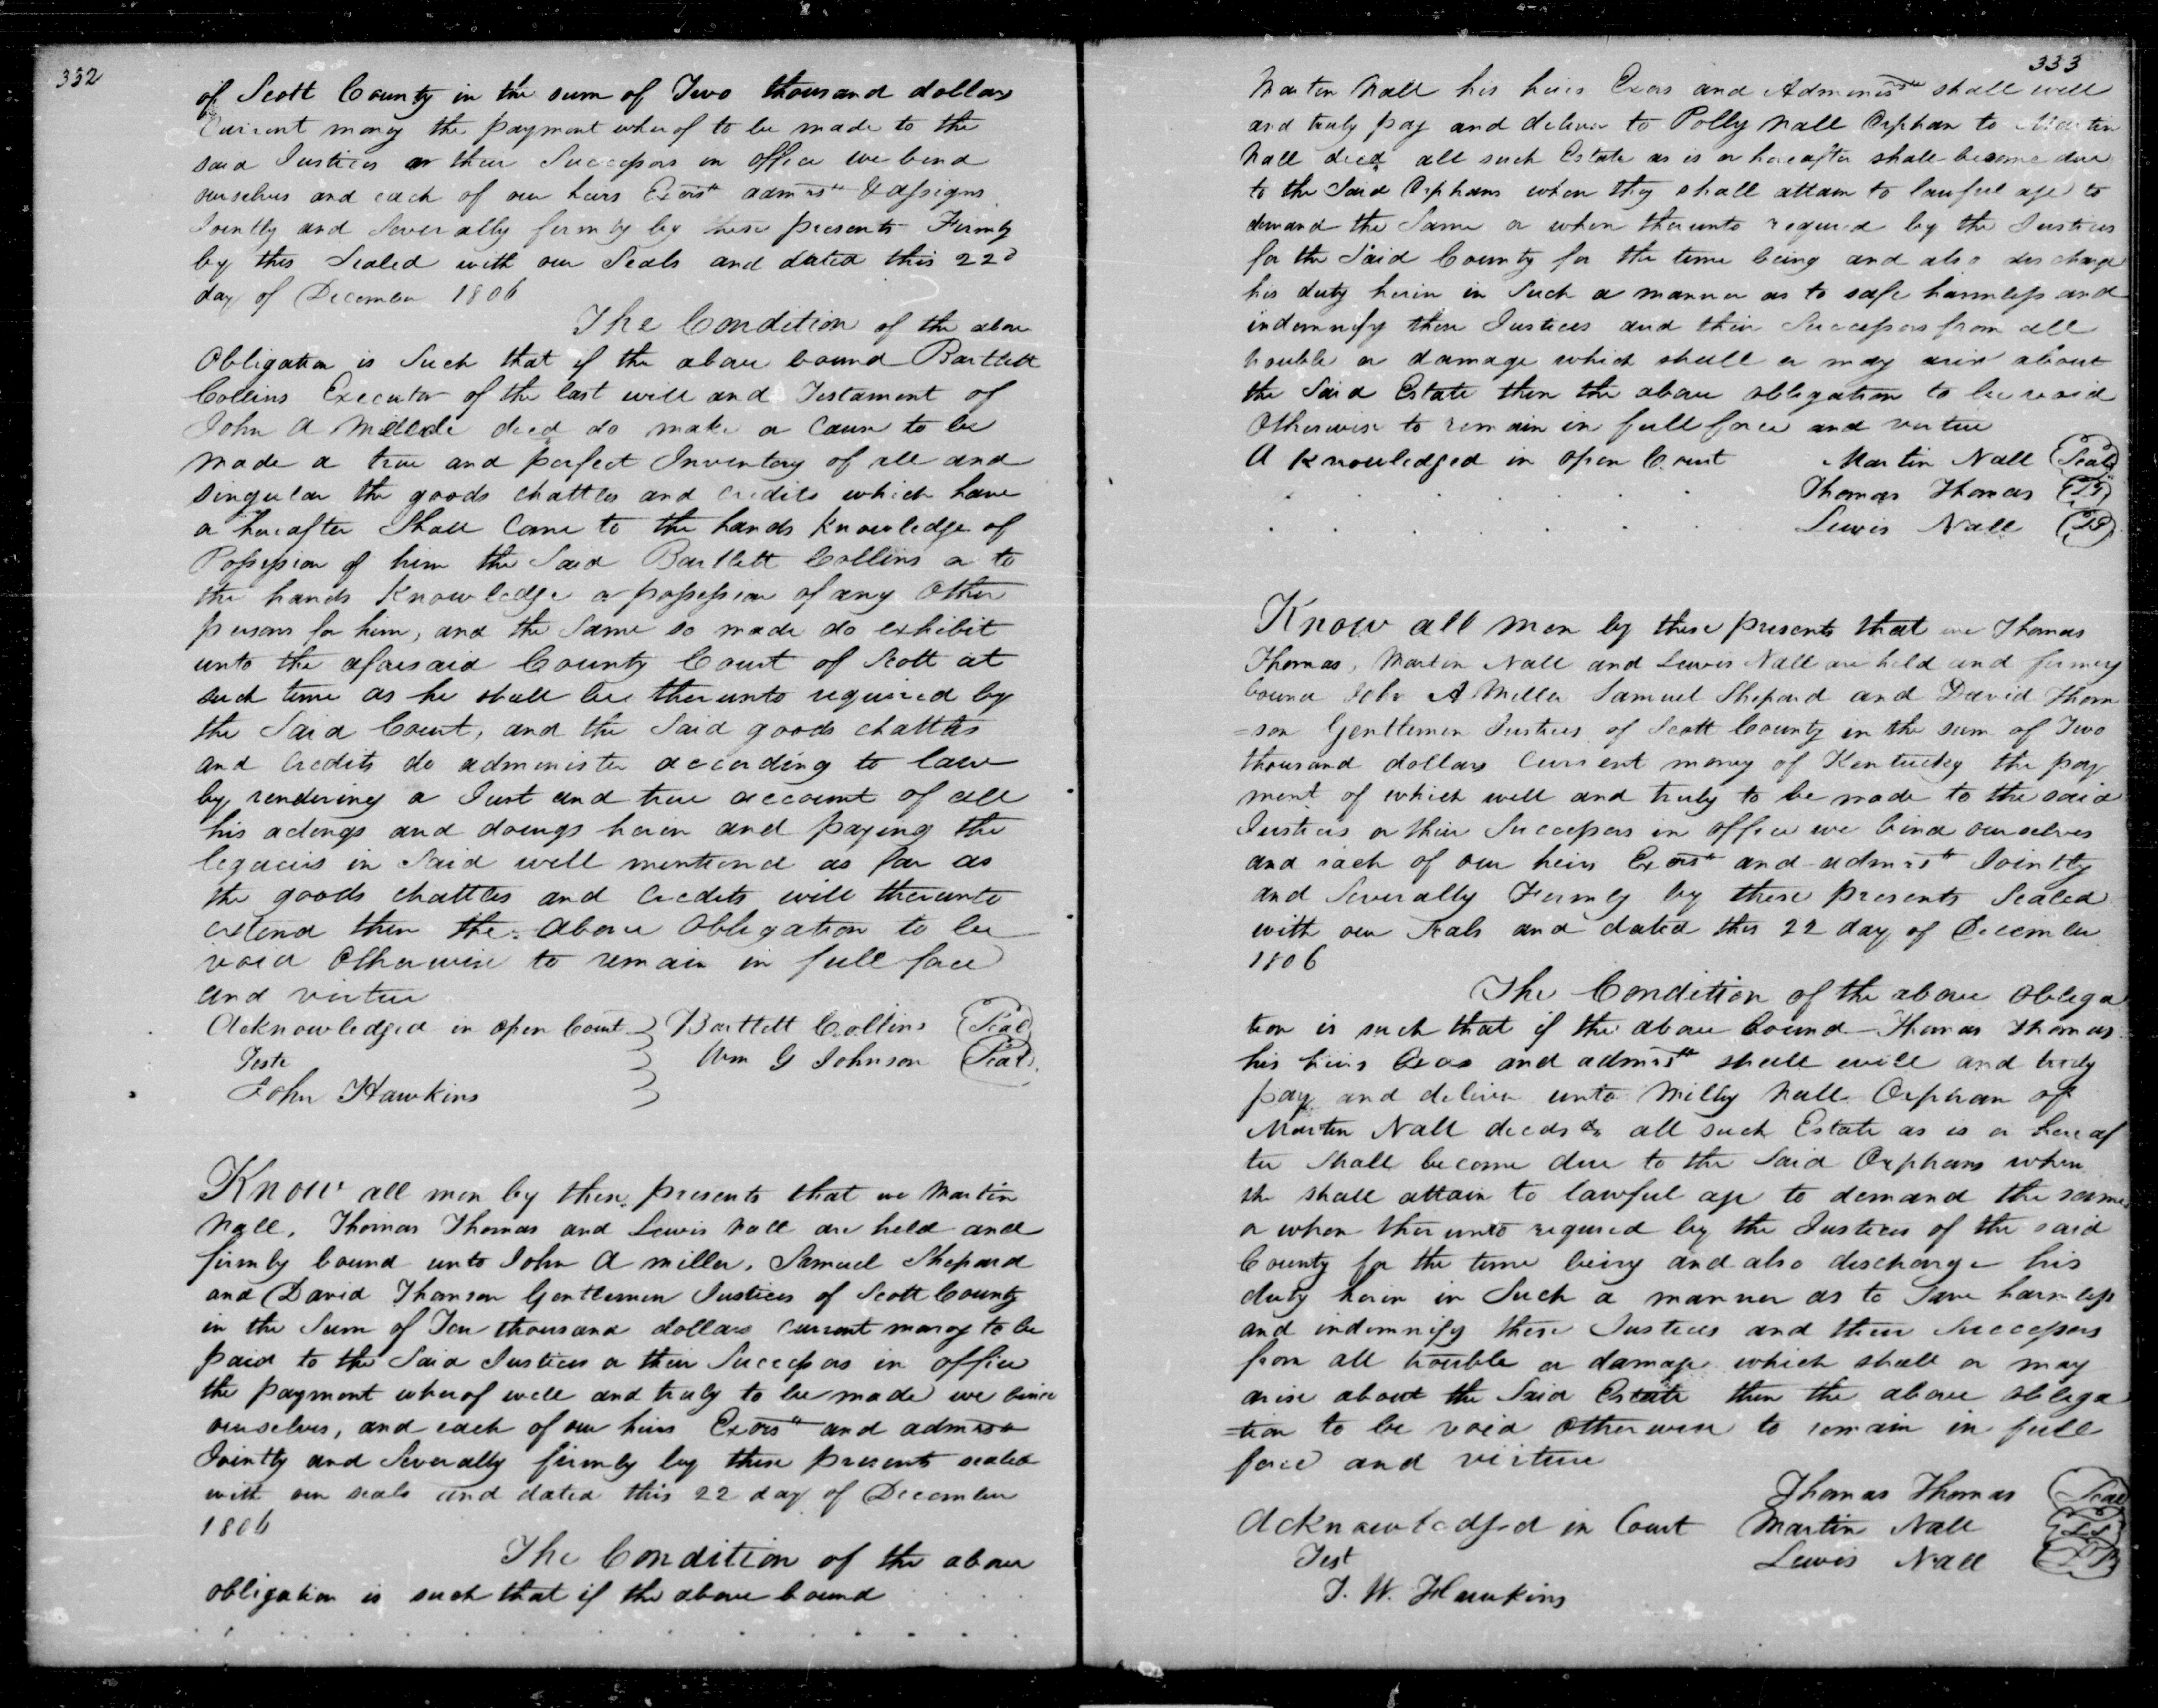 332
of Scott County in the sum of Two thousand dollars
Current money the payment wherof to be made to the
said Justices or their Successors in office we bind
ourselves and each of our heirs Exors admrs & assigns
Jointly and Severally firmly by these presents Firmly
by this Sealed with our Seals and dated this 22d
day of December 1806
The Condition of the above
Obligation is Such that if the above bound Bartlett
Collins Executor of the last will and Testament of
John A decd do make or Cause to be
made a true and perfect Inventory of all and
Singular the goods chattles and credits which have
or hereafter Shall Come to the hands Knowledge of
Possession of him the Said Bartlett Collins or to
the hands Knowledge or possession of any Other
persons for him, and the Same so made do exhibit
unto the aforesaid County Court of Scott at
such time as he shall be thereunto required by
the Said Court, and the Said goods chattles
and Credits do administer according to law
by rendering a Just and true account of all
his actings and doings herein and paying the
legacies in Said will mentiond as far as
the goods chattles and Credits will thereunto
extend then the above Obligation to be
void Otherwise to remain in full force
and virtue
Acknowledged in open Court Bartlett Collins Seal
Teste Wm G Johnson Seal
John Hawkins
Know all men by these presents that we Martin
Nall, Thomas Thomas and Lewis Nall are held and
firmly bound unto John A Miller, Samuel Shepard
and David Thomson Gentlemen Justices of Scott County
in the Sum of thousand dollars current money to be
paid to the Said Justices or their Successors in office
the payment wherof well and truly to be made we bind
ourselves, and each of our heirs Exors and admrs
Jointly and Severally firmly by these presents sealed
with our seals and dated this 22 day of December
1806
The Condition of the above
obligation is such that if the above bound
333
Martin Nall his heirs Exors and Adminrs shall well
and truly pay and deliver to Polly Nall Orphan to Martin
Nall decd all such Estate as is or hereafter shall become due
to the Said Orphans when they shall attain to lawful age to
demand the Same or when thereunto required by the Justices
for the Said County for the time being and also discharge
his duty herin in Such a manner as to safe harmless and
indemnify these Justices and their Successors from all
trouble or damage which shall or may arise about
the Said Estate then the above obligation to be void
Otherwise to remain in full force and virtue
A knowledged in open Court Martin Nall Seal
Thomas Thomas LS
Lewis Nall LS
Know all men by these presents that we Thomas
Thomas, Martin Nall and Lewis Nall are held and firmly
bound John A Miller Samuel Shepard and David Thom
=son Gentlemen Justices of Scott County in the sum of Two
thousand dollars Current money of Kentucky the pay
ment of which well and truly to be made to the said
Justices or their Successors in office we bind ourselves
and each of our heirs Exors and admrs Jointly
and Severally Firmly by these presents Sealed
with our Seals and dated this 22 day of December
1806
The Condition of the above Obliga
tion is such that if the above bound Thomas Thomas
his heirs Exors and admrs shall will and truly
pay and deliver unto Milly Nall Orphan of
Martin Nall all such Estate as is or hereaf
ter Shall become due to the Said Orphans when
she shall attain to lawful age to demand the same
or when thereunto required by the Justices of the said
County for the time being and also discharge his
duty herin in Such a manner as to Save harmless
and indemnify these Justices and their Successors
from all trouble or damage which shall or may
arise about the Said Estate then the above obliga
=tion to be void Otherwise to remain in full
force and virtue
Thomas Thomas Seal
Acknowledged in Court Martin Nall LS
Test Lewis Nall
J. W. Hawkins